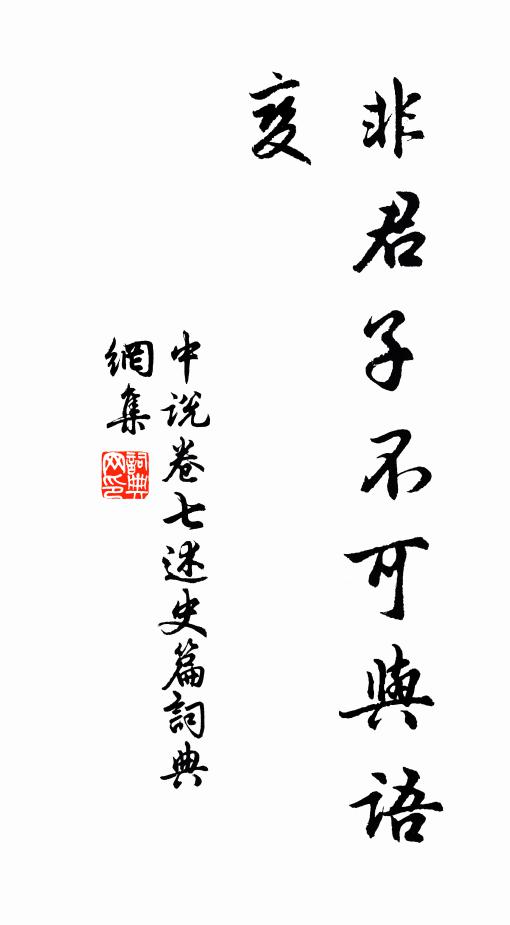 非君子不可與語
変
中説卷七述史篇詞典
網集
詞典
网印